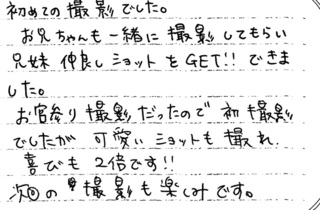 初めての撮影でした。
お兄ちゃんも一緒に撮影してもらい
兄妹仲良しショットをGET!!できま
した。
お宮参り撮影だったので初撮影
でしたが可愛いショットも撮れ、
喜びも2倍です!!
次回の撮影も楽しみです。